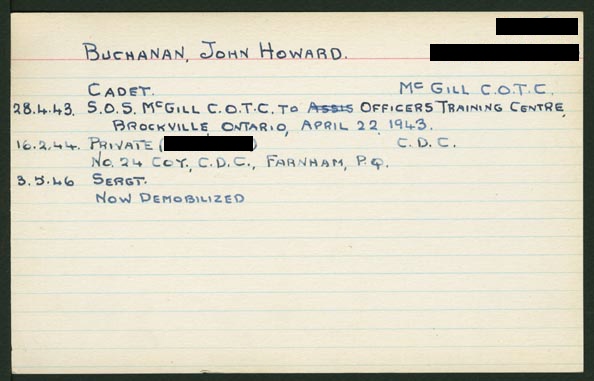 BUCHANAN, JOHN HOWARD.
CADET. MCGILL C.O.T.C.
28.4.43. S.O.S. MCGILL C.O.T.C. TO ASSIS OFFICERS TRAINING CENTRE,
BROCKVILLE ONTARIO, APRIL 22, 1943.
16.2.44. PRIVATE ( ) C.D.C.
NO. 24 COY, C.D.C., FARNHAM, P.Q.
3.5.46 SERGT.
NOW DEMOBILIZED